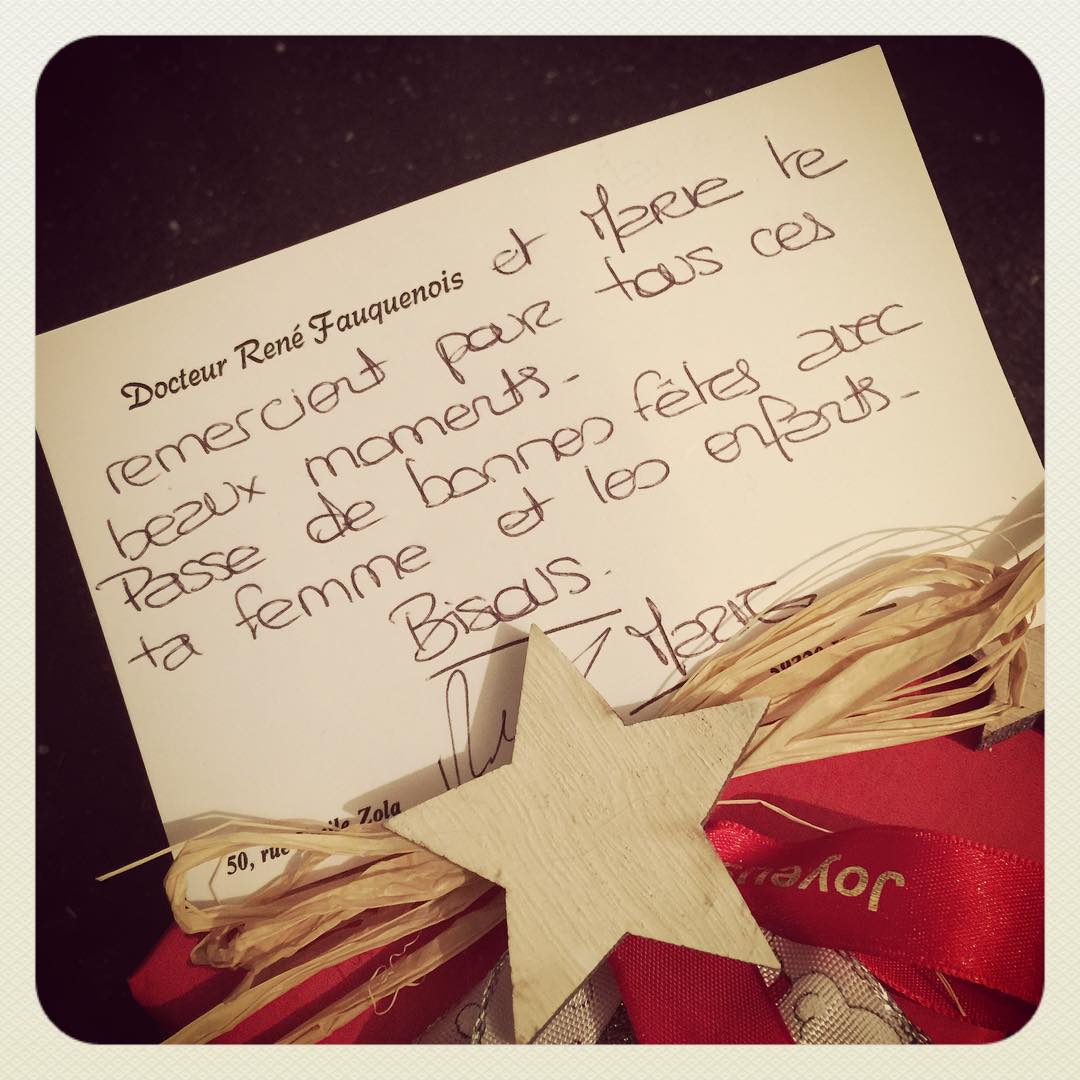 Docteur René Fauquenois et Marie te
remercient pour tous ces
beaux moments.
Passe de bonnes fêtes avec
ta femme et les enfants.
Bisous.
Marie
50, rue Zola
Joyeu